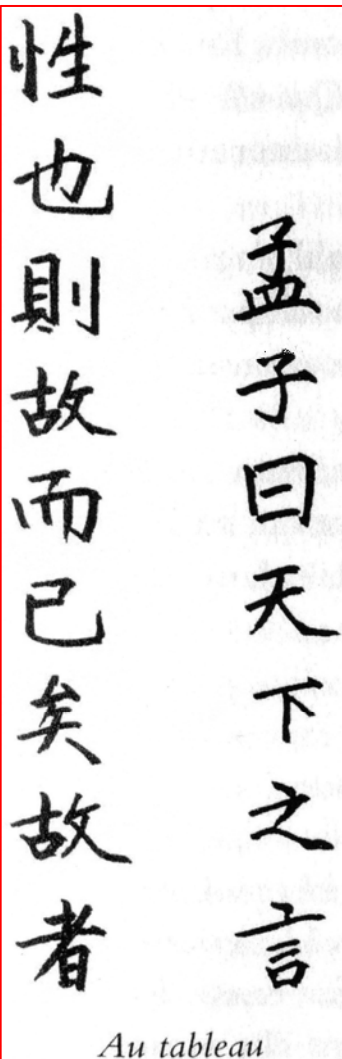 孟子曰天下之言
性也則故而已矣故者
Au tableau